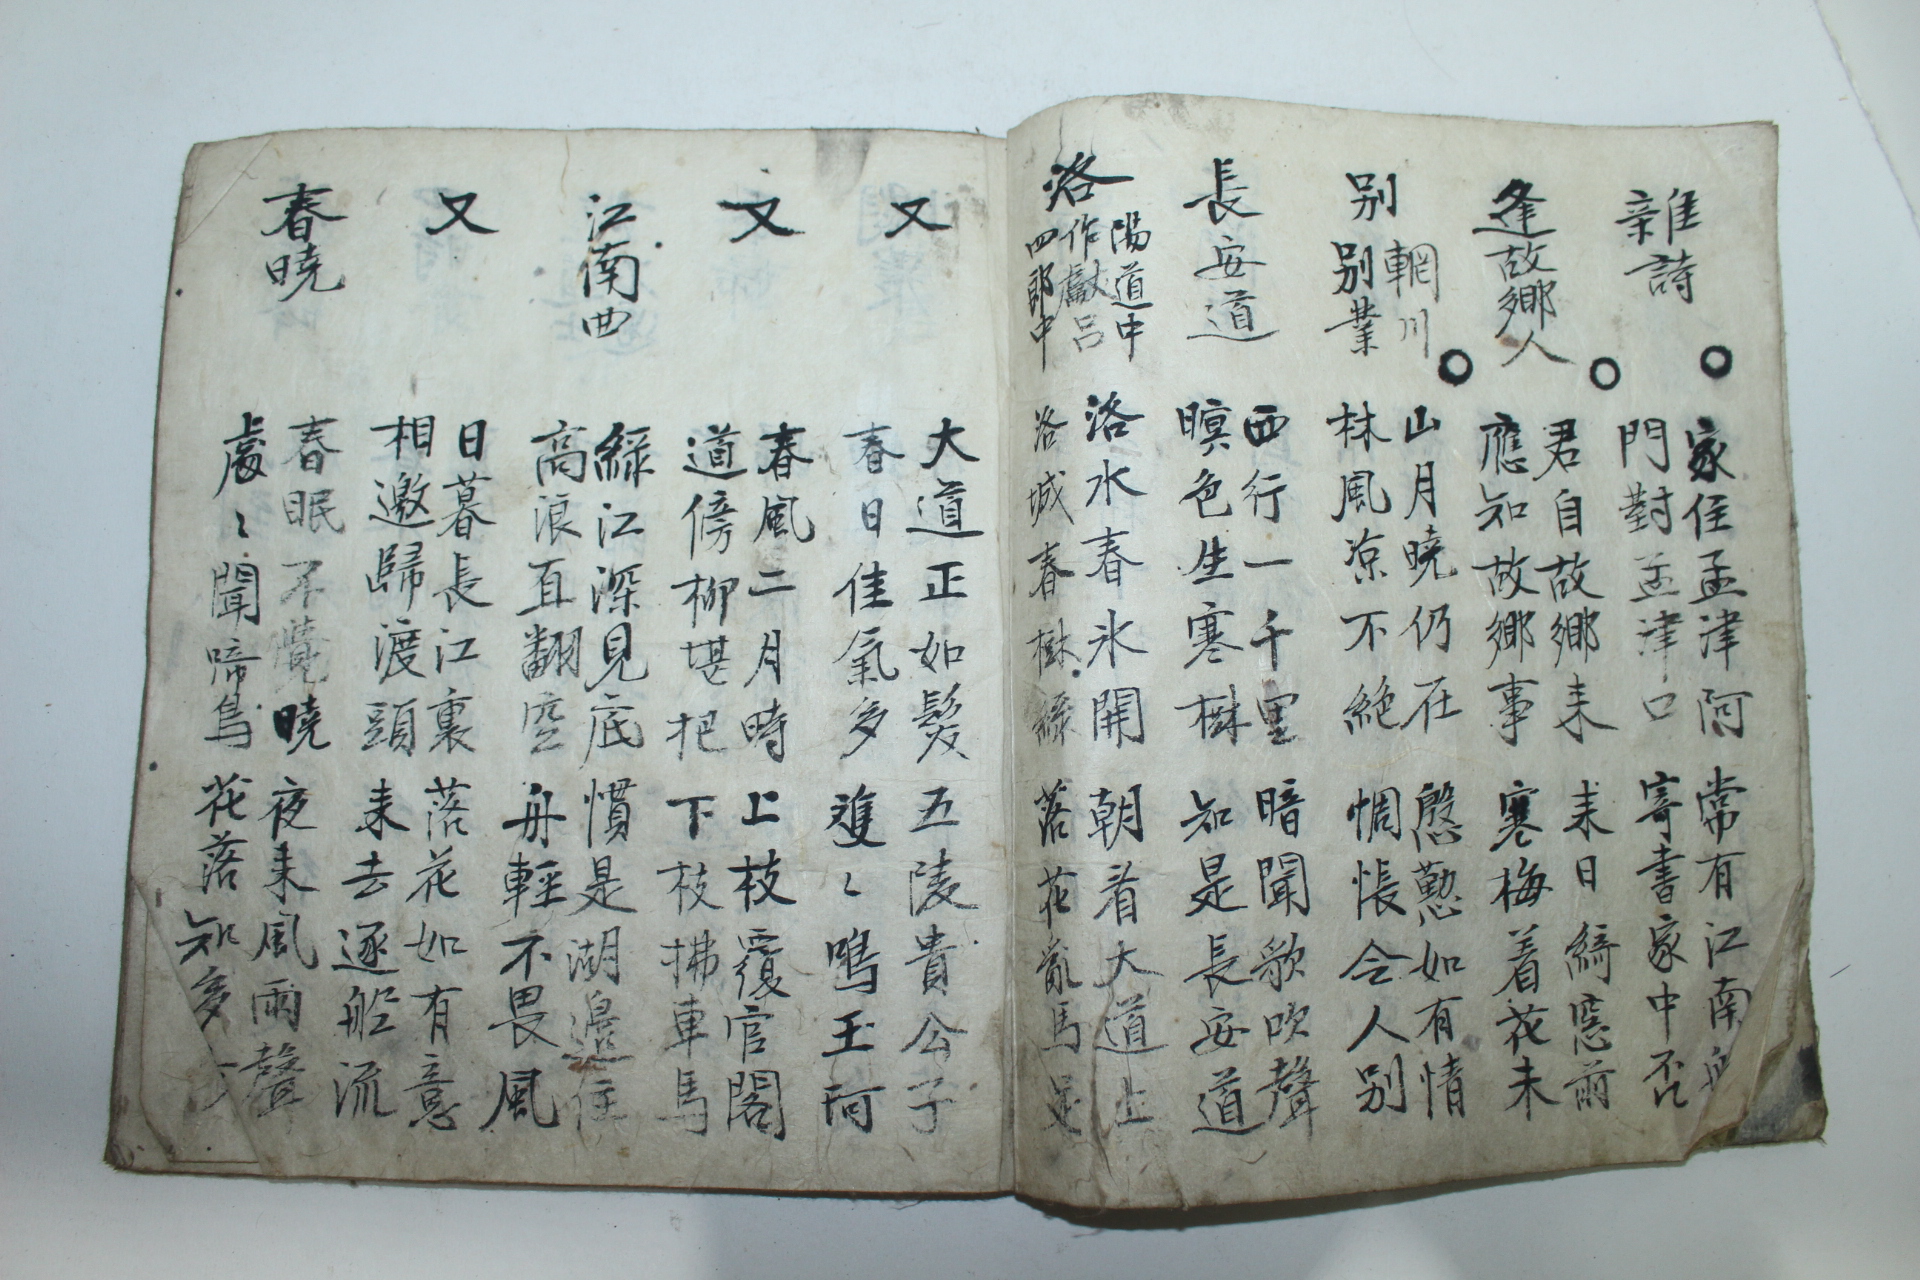 雜詩
家住孟津阿 常有江南
門對孟津口 寄書家中否
逢故鄉人
君自故鄉来 来日綺窓前
應知故鄉事 寒梅着花未
别輞川
别業
山月曉仍在 慇懃如有情
林風凉不絶 惆悵令人别
長安道
西行一千里 暗聞歌吹聲
暝色生寒樹 知是長安道
洛陽道中
作獻呂
四郎中
洛水春氷開 朝看大道上
洛城春樹綠 落花亂馬足
又
大道正如髮 五陵貴公子
春日佳氣多 雙〻鳴玉珂
又
春風二月時 上枝覆官閣
道傍柳堪把 下枝拂車馬
江南曲
綠江深見底 慣是湖邉住
高浪直翻空 舟輕不畏風
又
日暮長江裏 落花如有意
相邀歸渡頭 来去逐舩流
春曉
春眠不覺曉 夜来風雨聲
處〻聞啼鳥 花落知多